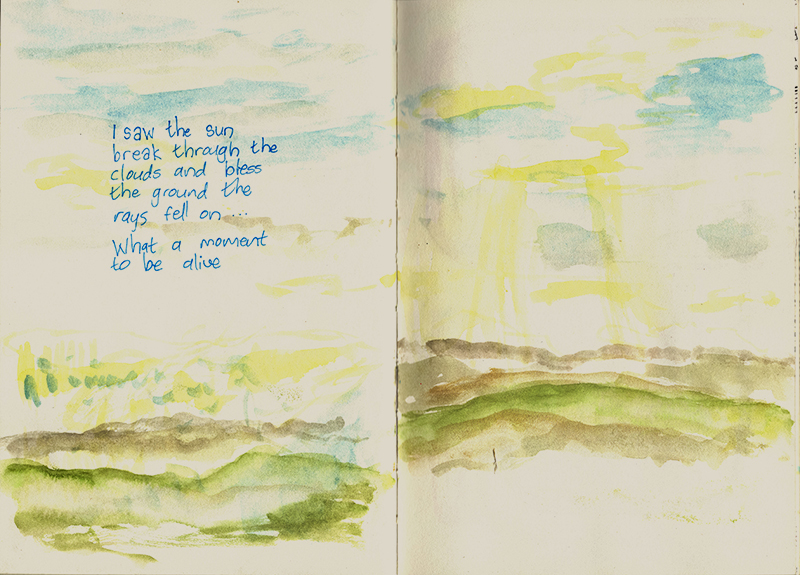 I saw the sun
break through the
clouds and bless
the ground the
rays fell on ...
What a moment
to be alive